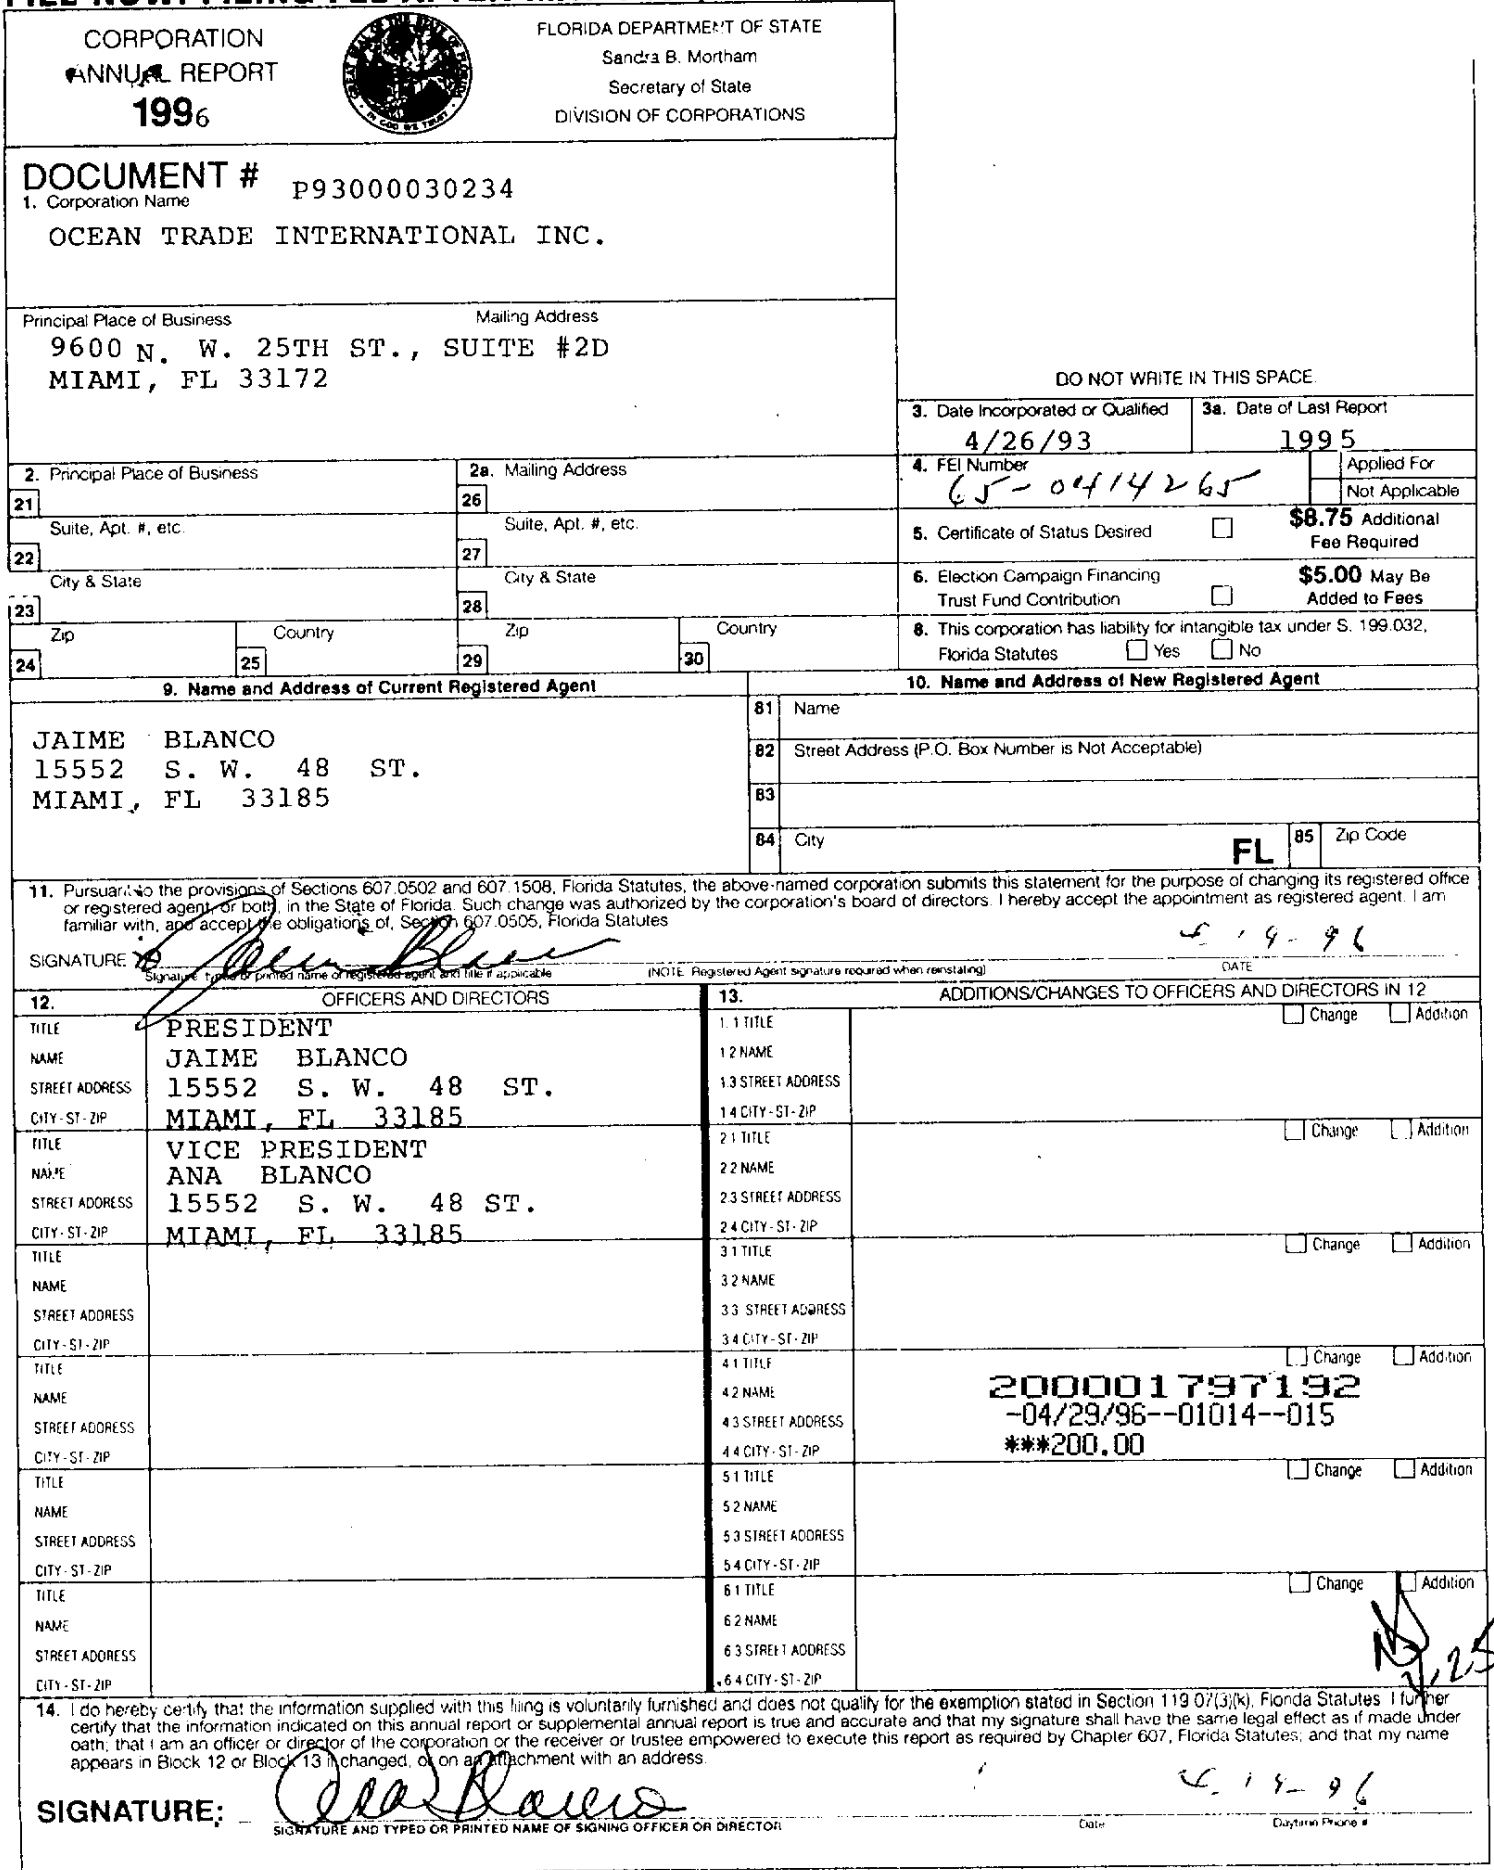 CORPORATION
ANNUAL REPORT
1996
FLORIDA DEPARTMENT OF STATE
Sandra B. Mortham
Secretary of State
DIVISION OF CORPORATIONS
DOCUMENT # P93000030234
1. Corporation Name
OCEAN TRADE INTERNATIONAL INC.
Principal Place of Business Mailing Address
9600 N. W. 25TH ST., SUITE #2D
MIAMI, FL 33172
DO NOT WRITE IN THIS SPACE
3. Date Incorporated or Qualified 3a. Date of Last Report
4/26/93 1995
2. Principal Place of Business 2a. Mailing Address
21 26
Suite, Apt. #, etc. Suite, Apt. #, etc.
22 27
City & State City & State
23 28
Zip Country Zip Country
24 25 29 30
4. FEI Number Applied For
65-0414265 Not Applicable
5. Certificate of Status Desired $8.75 Additional
Fee Required
6. Election Campaign Financing $5.00 May Be
Trust Fund Contribution Added to Fees
8. This corporation has liability for intangible tax under S. 199.032,
Florida Statutes Yes No
9. Name and Address of Current Registered Agent
JAIME BLANCO
15552 S. W. 48 ST.
MIAMI, FL 33185
10. Name and Address of New Registered Agent
81 Name
82 Street Address (P.O. Box Number is Not Acceptable)
83
84 City FL 85 Zip Code
11. Pursuant to the provisions of Sections 607.0502 and 607.1508, Florida Statutes, the above-named corporation submits this statement for the purpose of changing its registered office
or registered agent, or both, in the State of Florida. Such change was authorized by the corporation's board of directors. I hereby accept the appointment as registered agent. I am
familiar with, and accept the obligations of, Section 607.0505, Florida Statutes
SIGNATURE
Signature, typed or printed name of registered agent and title if applicable (NOTE Registered Agent signature required when reinstating) DATE
12. OFFICERS AND DIRECTORS
TITLE PRESIDENT
NAME JAIME BLANCO
STREET ADDRESS 15552 S. W. 48 ST.
CITY-ST-ZIP MIAMI, FL 33185
TITLE VICE PRESIDENT
NAME ANA BLANCO
STREET ADDRESS 15552 S. W. 48 ST.
CITY-ST-ZIP MIAMI, FL 33185
TITLE
NAME
STREET ADDRESS
CITY-ST-ZIP
TITLE
NAME
STREET ADDRESS
CITY-ST-ZIP
TITLE
NAME
STREET ADDRESS
CITY-ST-ZIP
TITLE
NAME
STREET ADDRESS
CITY-ST-ZIP
13. ADDITIONS/CHANGES TO OFFICERS AND DIRECTORS IN 12
1.1 TITLE Change Addition
1.2 NAME
1.3 STREET ADDRESS
1.4 CITY-ST-ZIP
2.1 TITLE Change Addition
2.2 NAME
2.3 STREET ADDRESS
2.4 CITY-ST-ZIP
3.1 TITLE Change Addition
3.2 NAME
3.3 STREET ADDRESS
3.4 CITY-ST-ZIP
4.1 TITLE Change Addition
4.2 NAME 200001797192
4.3 STREET ADDRESS -04/29/96--01014--015
4.4 CITY-ST-ZIP ***200.00
5.1 TITLE Change Addition
5.2 NAME
5.3 STREET ADDRESS
5.4 CITY-ST-ZIP
6.1 TITLE Change Addition
6.2 NAME
6.3 STREET ADDRESS
6.4 CITY-ST-ZIP
14. I do hereby certify that the information supplied with this filing is voluntarily furnished and does not qualify for the exemption stated in Section 119.07(3)(k), Florida Statutes. I further
certify that the information indicated on this annual report or supplemental annual report is true and accurate and that my signature shall have the same legal effect as if made under
oath; that I am an officer or director of the corporation or the receiver or trustee empowered to execute this report as required by Chapter 607, Florida Statutes; and that my name
appears in Block 12 or Block 13 if changed, or on an attachment with an address.
SIGNATURE: Ana Blanco
SIGNATURE AND TYPED OR PRINTED NAME OF SIGNING OFFICER OR DIRECTOR Date Daytime Phone #